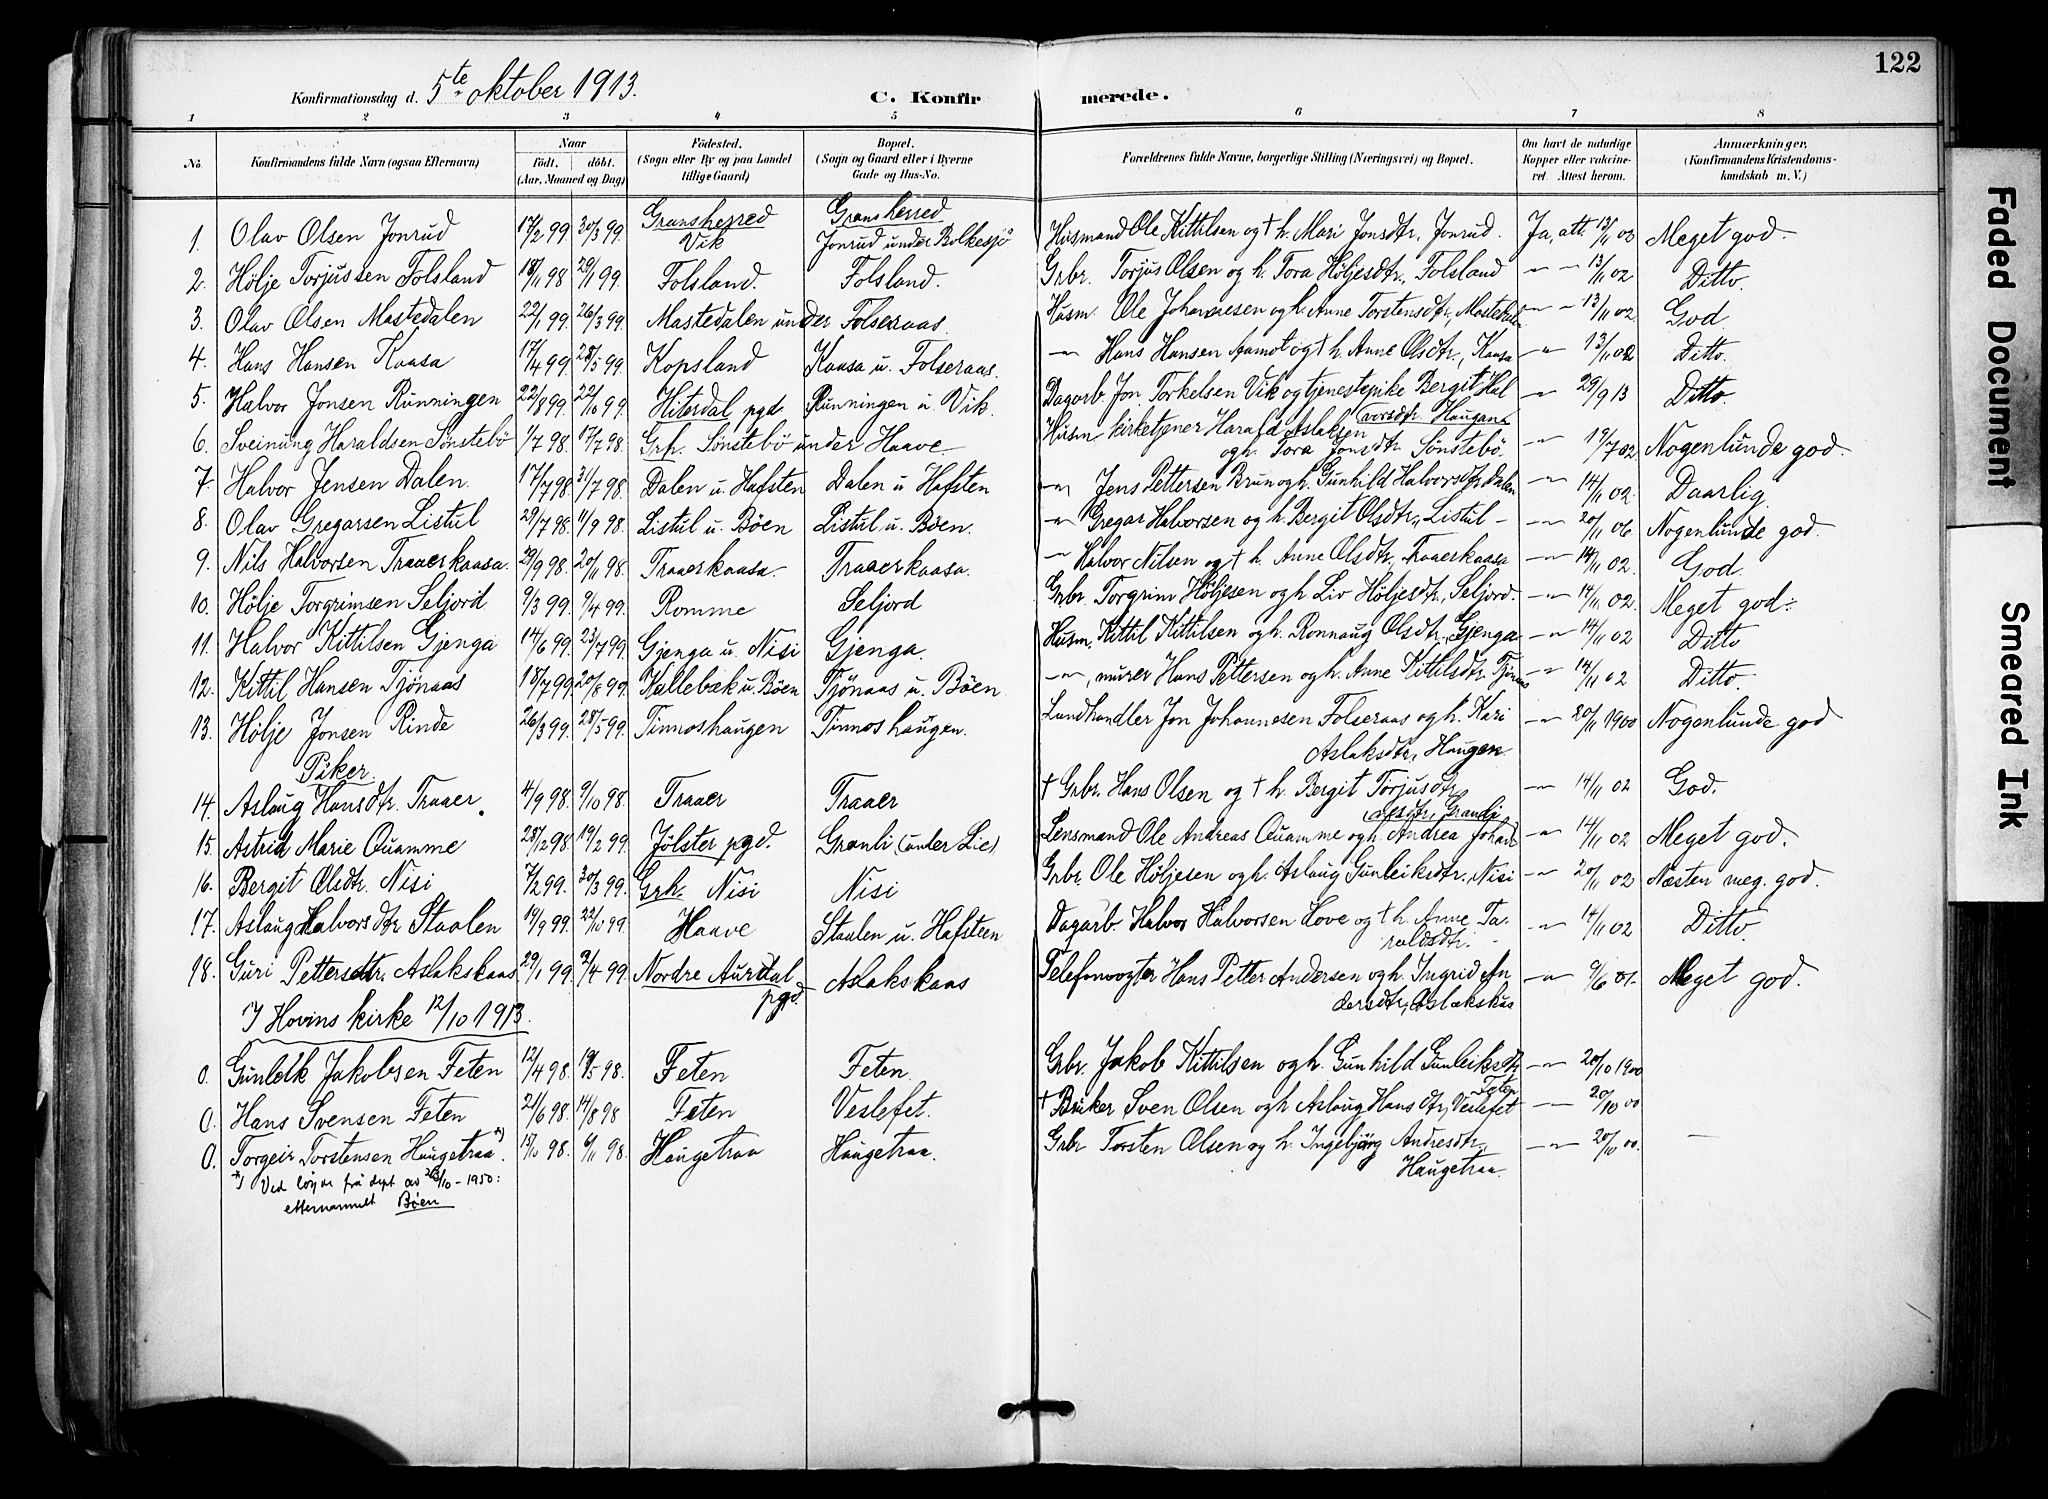 122
Konfirmationsdag d. 5te oktober 1913. C. Konfirmerede.
1 2 3 4 5 6 7 8
No. Konfirmandens fulde Navn (ogsaa Efternavn) Naar födt. döbt. (Aar, Maaned og Dag) Födested. (Sogn eller By og paa Landet tillige Gaard) Bopæl. (Sogn og Gaard eller i Byerne Gade og Hus-No. Forældrenes fulde Navne, borgerlige Stilling (Næringsvei) og Bopæl. Om havt de naturlige Kopper eller vaccineret. Attest herom. Anmærkninger, (Konfirmandens Kristendomskundskab m. V.)
1. Olav Olsen Jonrud 17/2 99 30/3 99. Gransherred Vik Gransherred Jonrud under Bolkesjö Husmand Ole Kittilsen og † h. Mari Jonsdtr. Jonrud. Ja, att. 13/11 03 Meget god.
2. Hölje Torjussen Folsland 18/11 98 29/1 99. Folsland. Folsland. Grbr. Torjus Olsen og h. Tora Höljesdtr., Folsland -"- -"- 13/11 02 Ditto.
3. Olav Olsen Mastedalen 22/1 99. 26/3 99. Mastedalen under Folseraas. Husm. Ole Johannesen og h. Anne Torstensdtr., Mastedalen -"- 13/11 02. God
4. Hans Hansen Kaasa 17/4 99 28/5 99. Kopsland Kaasa u. Folseraas. -"- Hans Hansen Aamot og † h. Anne Olsdtr., Kaasa -"- 13/11 02 Ditto.
5. Halvor Jonsen Rünningen 22/8 99. 22/10 99. Hiterdal pgd Rünningen u. Vik. Dagarb. Jon Torkelsen Vik og tjenestepike Bergit Halvorsdtr. Haugan -"- 29/9 13 Ditto.
6. Sveinung Haraldsen Sönstebö 1/7 98. 17/7 98. Grh. Sönstebö under Haave. Husm. kirketjener Harald Aslaksen og h. Tora Jonsdtr Sönstebö. -"- 19/7 02 Nogenlunde god.
7. Halvor Jensen Dalen. 17/7 98. 31/7 98. Dalen u. Hafsten Dalen u Hafsten -"- Jens Pettersen Brun og h. Gunhild Halvorsdtr Dalen -"- 14/11 02. Daarlig
8. Olav Gregarsen Listul 29/7 98. 11/9 98. Listul u. Böen Listul u. Böen. -"- Gregar Halvorsen og h. Bergit Olsdtr., Listul - -"- 20/11 06 Nogenlunde god.
9. Nils Halvorsen Traaerkaasa. 29/9 98. 20/11 98. Traaerkaasa. Traaerkaasa. -"- Halvor Nilsen og † h. Anne Olsdtr., Traaerkaasa -"- 14/11 02. God.
10. Hölje Torgrimsen Seljord 9/3 99. 9/4 99. Romme Seljord Grbr. Torgrim Höljesen og h Liv Höljesdtr., Seljord. -"- 14/11 02. Meget god.
11. Halvor Kittilsen Gjenga 14/6 99. 23/7 99. Gjenga u. Nisi Gjenga. Husm. Kittil Kittilsen og h. Ronnaug Olsdtr. Gjenga -"- 14/11 02 Ditto
12. Kittil Hansen Tjönaas 18/7 99. 20/8 99. Kallebæk u. Böen Tjönaas u. Böen -"-, murer Hans Pettersen og h. Anne Kittilsdtr. Tjönaas -"- 14/11 02 Ditto.
13. Hölje Jonsen Rinde 26/3 99. 28/5 99. Tinnoshaugen Tinnoshaugen. Landhandler Jon Johannesen Folseraas og h. Kari Aslaksdtr, Haugen -"- 20/11 1900 Nogenlunde god
Piker.
14. Aslaug Hansdtr. Traaer. 4/9 98. 9/10 98. Traaer Traaer † Grbr. Hans Olsen og † h. Bergit Torjusdtr. -"- 14/11 02 God.
15. Astrid Marie Quamme 28/12 98. 19/2 99. Jölster pgd. Granli (under Lie) Lensmand Ole Andreas Quamme og h. Andrea Johannesdtr, Granli. -"- 14/11 02 Meget god.
16. Bergit Olsdtr. Nisi 7/2 99. 30/3 99. Grh. Nisi Nisi Grbr. Ole Höljesen og h. Aslaug Gunleiksdtr. Nisi -"- 20/11 02 Næsten meg. god.
17. Aslaug Halvorsdtr Staalen 19/9 99. 22/10 99. Haave Staalen u. Hafsteen Dagarb. Halvor Halvorsen Hove og † h. Anne Taraldsdtr. -"- 14/11 02 Ditto.
18. Guri Pettersdtr. Aslakskaas 29/1 99. 2/4 99. Nordre Aurdal pgd. Aslakskaas Telefonvogter Hans Petter Andersen og h. Ingrid Andersdtr., Aslakskaas -"- 9/6 01. Meget god.
I Hovins kirke 12/10 1913.
0. Gunleik Jakobsen Feten 12/4 98. 19/5 98. Feten Feten. Grbr. Jakob Kittilsen og h. Gunhild Gunleiksdtr Feten -"- 20/10 1900
0. Hans Svensen Feten 21/6 98. 14/8 98 Feten Veslefet. † Bruker Sven Olsen og h Aslaug Hansdtr, Veslefet -"- 20/10 00
0. Torgeir Torstensen Haugetraa *) 15/10 98. 6/11 98. Haugetraa Haugetraa. Grbr Torsten Olsen og h. Ingebjörg Andresdtr., Haugetraa. -"- 20/10 00. -
*) Ved löyve frå dept av 28/10-1950:
etternamnet Böen
Faded Document
Smeared Ink